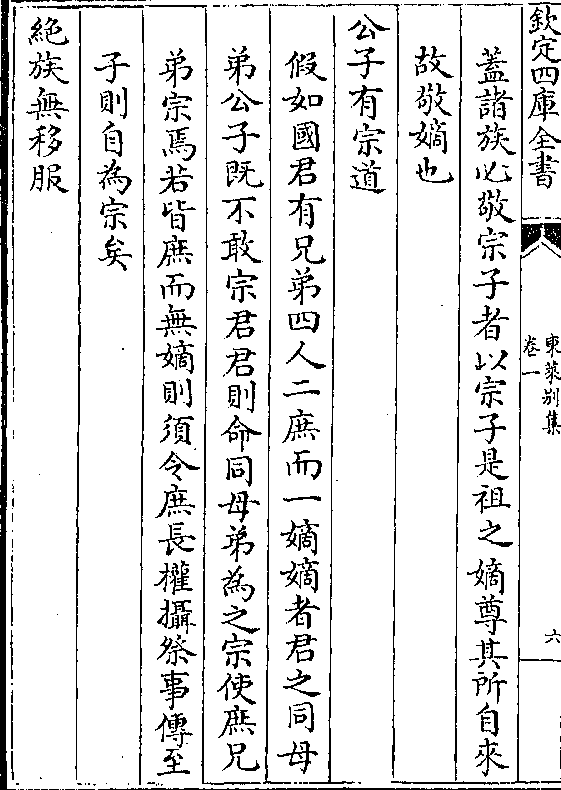 欽定四庫全書
東萊別集
卷一
六
蓋諸族必敬宗子者以宗子是祖之嫡尊其所自來
故敬嫡也
公子有宗道
假如國君有兄弟四人二庶而一嫡嫡者君之同母
弟公子既不敢宗君君則命同母弟為之宗使庶兄
弟宗焉若皆庶而無嫡則須令庶長權攝祭事傳至
子則自為宗矣
絶族無移服